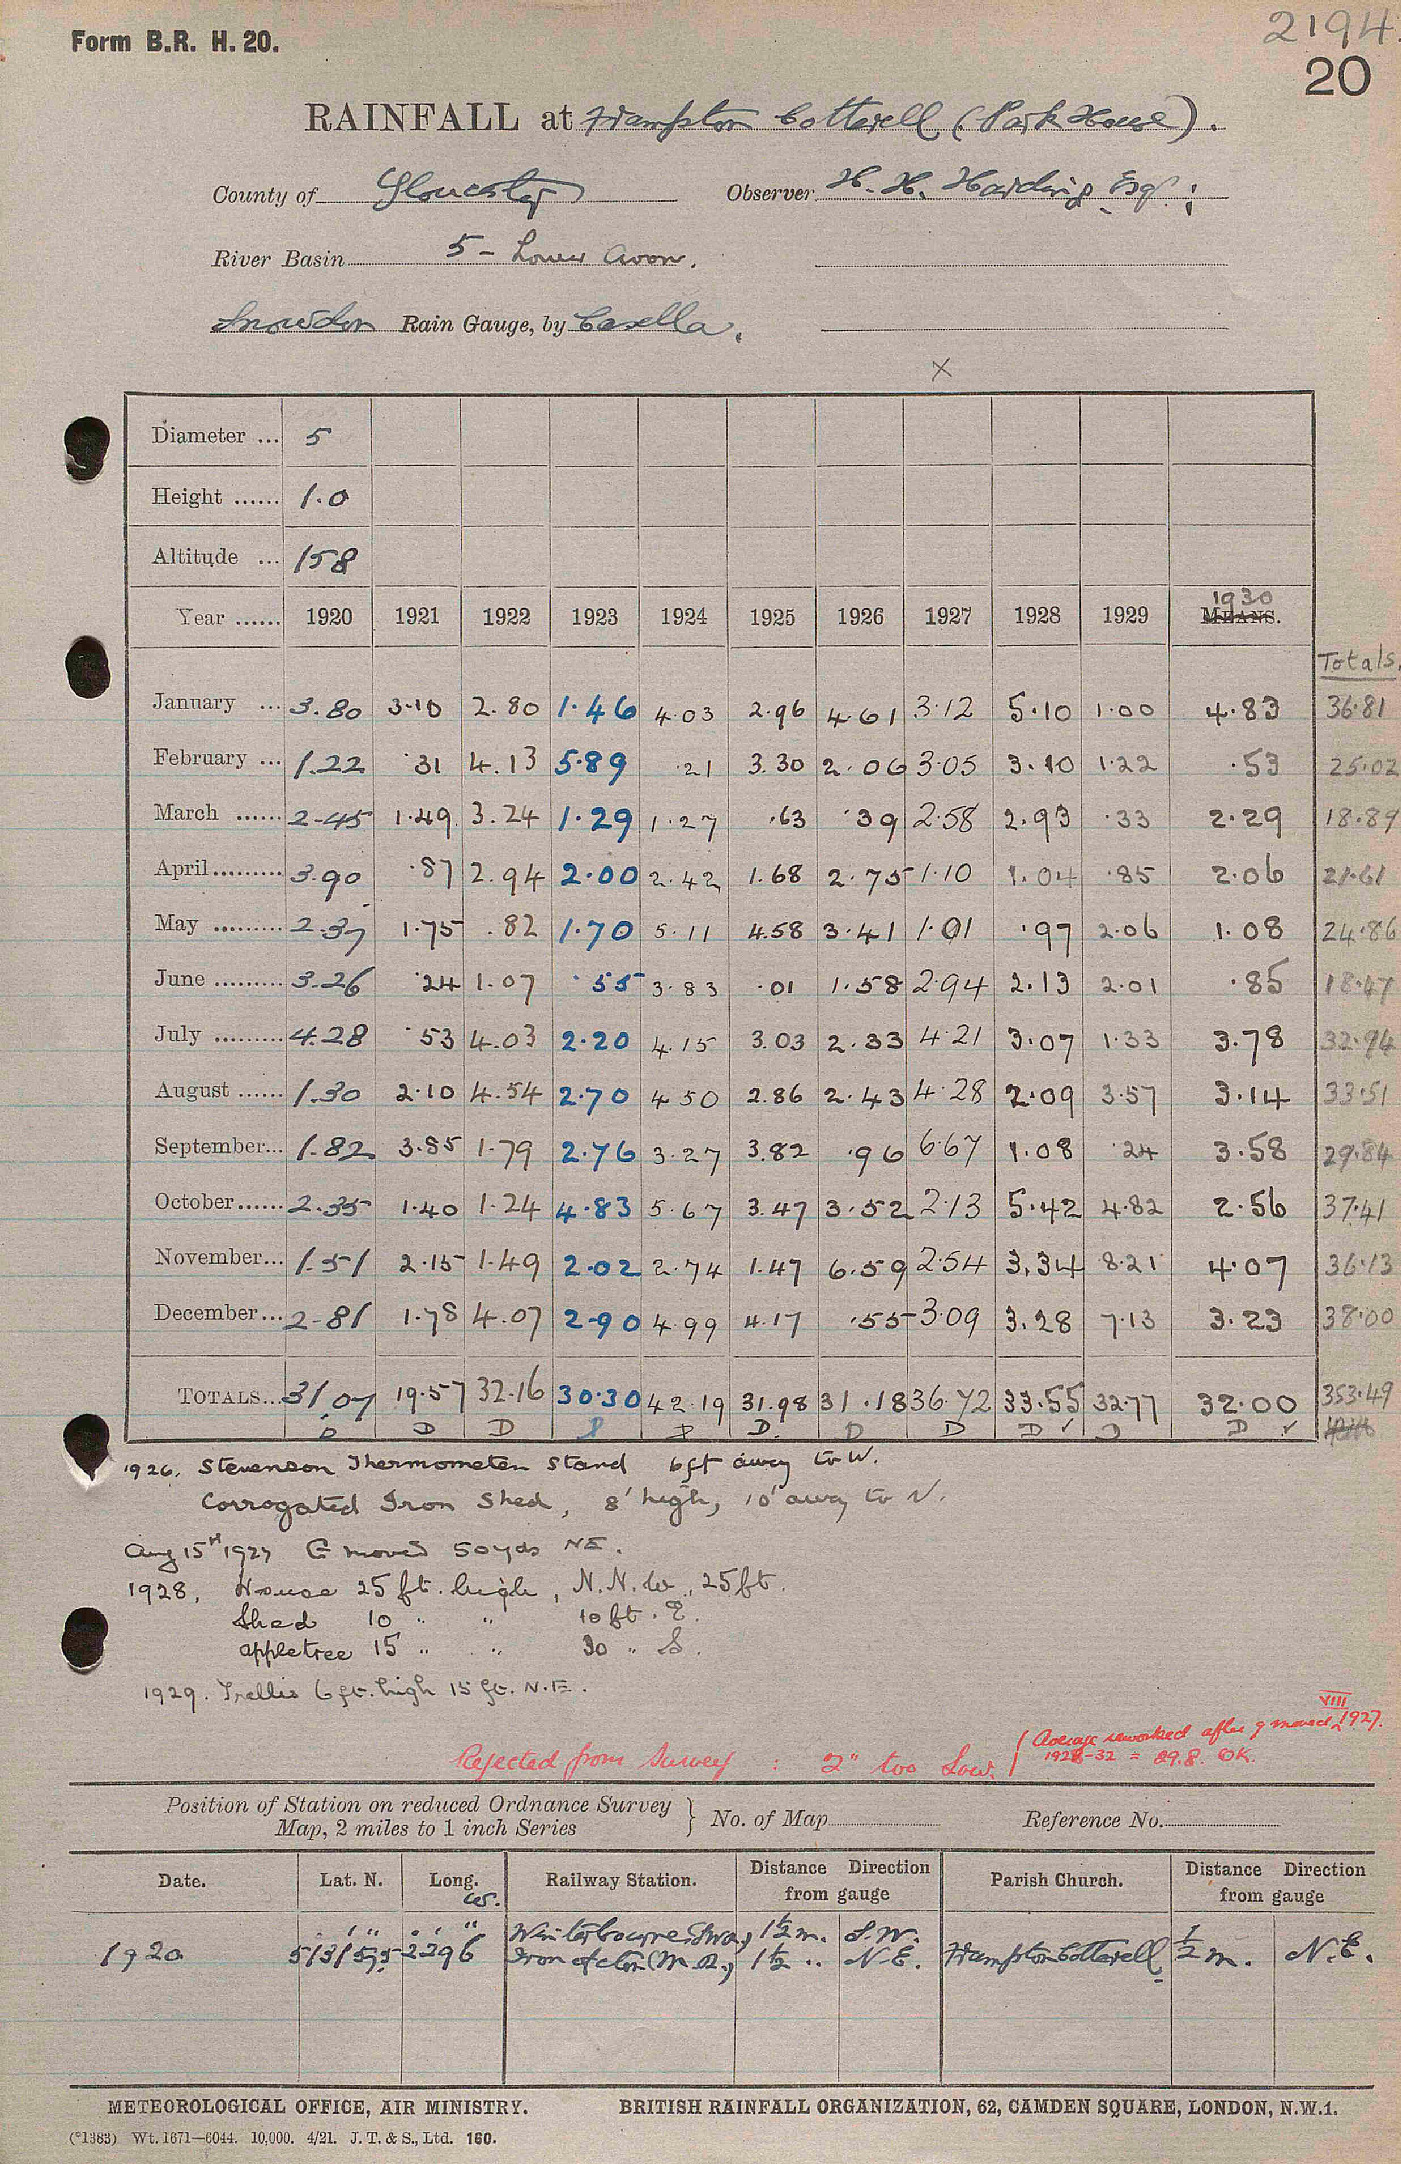 2194.
Form B.R. H. 20.
20
RAINFALL at Frampton Cotterell (Park House).
County of Gloucester Observer H. H. Harding Esq.;
River Basin 5 - Lower Avon.
Snowdon Rain Gauge, by Casella.
X
Diameter ... 5
Height ...... 1.0
Altitude ... 158
1930
Year ...... 1920 1921 1922 1923 1924 1925 1926 1927 1928 1929 MEANS.
Totals.
January ... 3.80 3.10 2.80 1.46 4.03 2.96 4.61 3.12 5.10 1.00 4.83 36.81
February ... 1.22 .31 4.13 5.89 .21 3.30 2.06 3.05 3.10 1.22 .53 25.02
March ...... 2.45 1.49 3.24 1.29 1.27 .63 .39 2.58 2.93 .33 2.29 18.89
April ......... 3.90 .87 2.94 2.00 2.42 1.68 2.75 1.10 1.04 .85 2.06 21.61
May ......... 2.37 1.75 .82 1.70 5.11 4.58 3.41 1.01 .97 2.06 1.08 24.86
June ......... 3.26 .24 1.07 .55 3.83 .01 1.58 2.94 2.13 2.01 .85 18.47
July ......... 4.28 .53 4.03 2.20 4.15 3.03 2.33 4.21 3.07 1.33 3.78 32.94
August ...... 1.30 2.10 4.54 2.70 4.50 2.86 2.43 4.28 2.09 3.57 3.14 33.51
September... 1.82 3.85 1.79 2.76 3.27 3.82 .96 6.67 1.08 .24 3.58 29.84
October...... 2.35 1.40 1.24 4.83 5.67 3.47 3.52 2.13 5.42 4.82 2.56 37.41
November... 1.51 2.15 1.49 2.02 2.74 1.47 6.59 2.54 3.34 8.21 4.07 36.13
December... 2.81 1.78 4.07 2.90 4.99 4.17 .55 3.09 3.28 7.13 3.23 38.00
TOTALS... 31.07 19.57 32.16 30.30 42.19 31.98 31.18 36.72 33.55 32.77 32.00 353.49
D D D D D D. D D D ✓ D D ✓
1926. Stevenson Thermometer Stand 6ft away to W.
Corrogated Iron Shed, 8' high, 10' away to N.
Aug 15th 1927 G moved 50yds NE.
1928, House 25 ft. high, N.N.W., 25ft.
Shed 10 " " 10 ft. E.
appletree 15 " " 30 " S.
1929. Trellis 6ft. high 15 ft. N.E.
Rejected from Survey : 2" too Low.
Average reworked after g moved VIII 1927.
1928-32 = 29.8. OK.
Position of Station on reduced Ordnance Survey Map, 2 miles to 1 inch Series } No. of Map Reference No.
Date. Lat. N. Long. W. Railway Station. Distance Direction from gauge Parish Church. Distance Direction from gauge
° ' " ° ' " Winterbourne 1½ m. S.W.
1920 2 29 6 Iron Acton (M.R.) 1½ " N.E. Frampton Cotterell ½ m. N.E.
METEOROLOGICAL OFFICE, AIR MINISTRY. BRITISH RAINFALL ORGANIZATION, 62, CAMDEN SQUARE, LONDON, N.W.1.
(*1383) Wt. 1671—6044. 10,000. 4/21. J. T. & S., Ltd. 160.